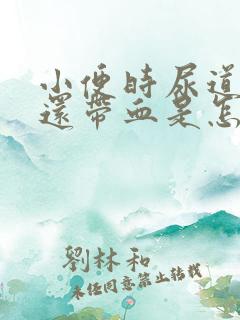 小便時尿道
還帶血是怎
劉林和
未经同意禁止转载